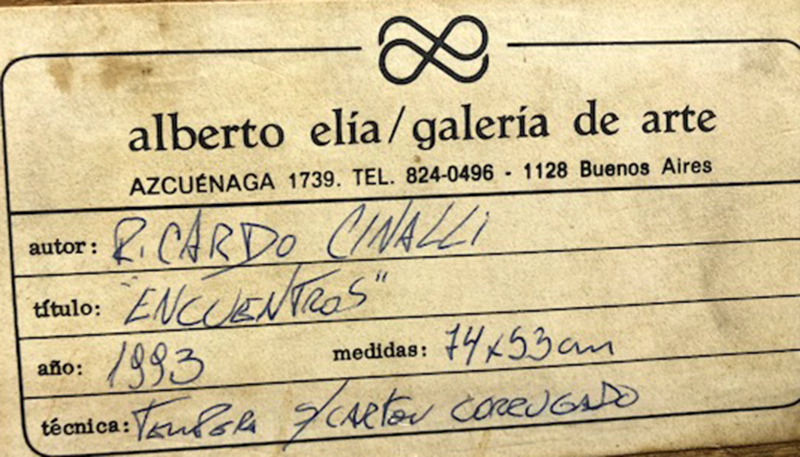 alberto elía/galería de arte
AZCUÉNAGA 1739. TEL. 824-0496 - 1128 Buenos Aires
autor: RICARDO CINALLI
título: "ENCUENTROS"
año: 1993 medidas: 74x53cm
técnica: TEMPERA s/CARTON CORRUGADO